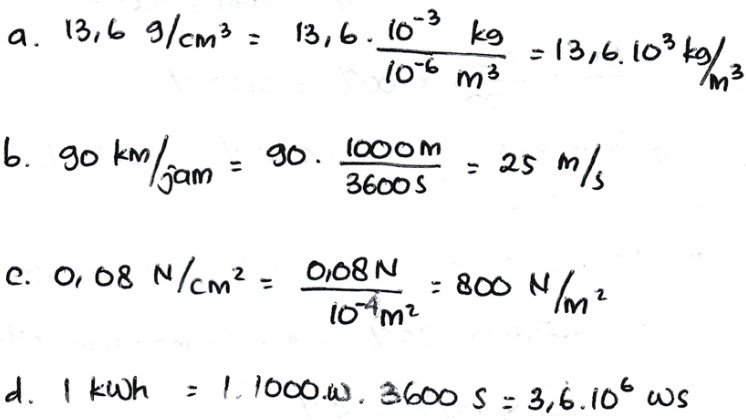 a. 13,6 g/cm³ = 13,6 . 10⁻³ kg / 10⁻⁶ m³ = 13,6.10³ kg/m³
b. 90 km/jam = 90 . 1000 m / 3600 s = 25 m/s
c. 0,08 N/cm² = 0,08 N / 10⁻⁴ m² = 800 N/m²
d. 1 kwh = 1.1000.w. 3600 s = 3,6.10⁶ ws